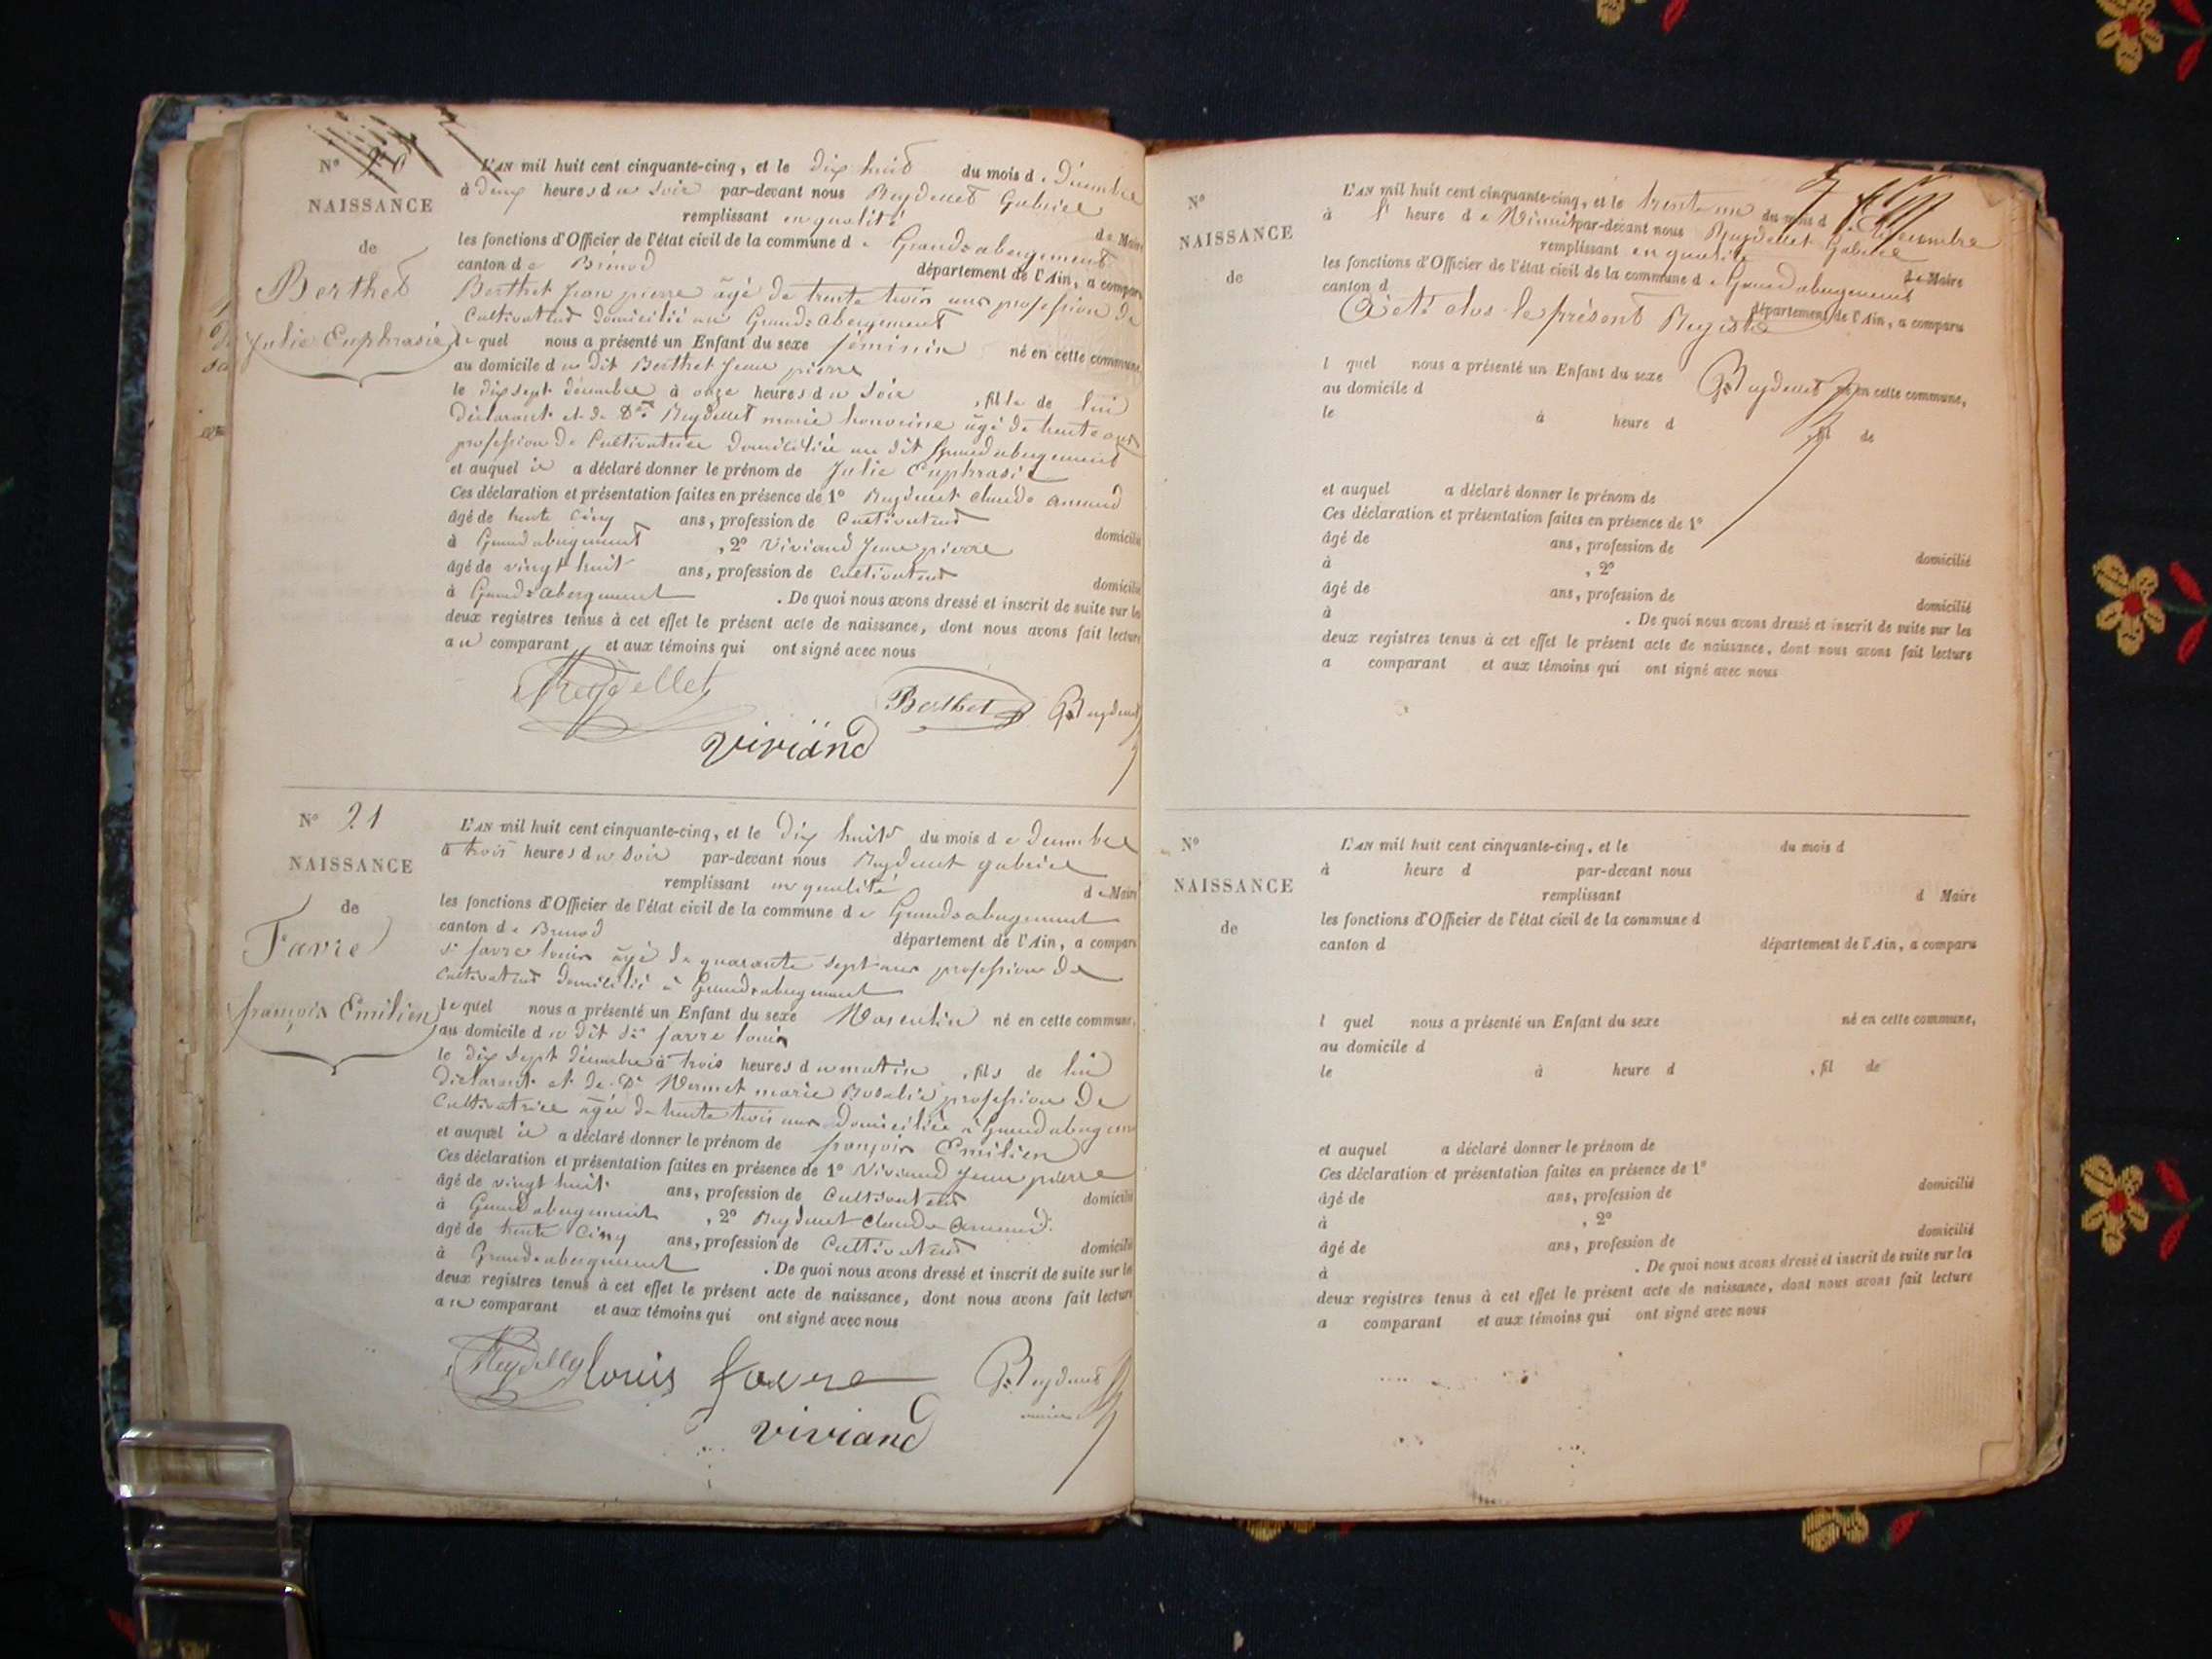 N° 20
NAISSANCE
de
Berthet
Julie Euphrasie
L'AN mil huit cent cinquante-cinq, et le dix huit du mois de Décembre
à deux heures du soir par-devant nous Reydellet Gabriel
remplissant en qualité de Maire
les fonctions d'Officier de l'état civil de la commune de Grand=abergement
canton de Brénod département de l'Ain, a comparu
Berthet Jean pierre âgé de trente trois ans profession de
Cultivateur domicilié au Grand=Abergement
lequel nous a présenté un Enfant du sexe féminin né en cette commune,
au domicile du dit Berthet Jean pierre
le dix sept décembre à onze heures du soir, fille de lui
déclarant et de De Reydellet marie honorine âgé de trente ans
profession de Cultivatrice domiciliée au dit Grand abergement
et auquel il a déclaré donner le prénom de Julie Euphrasie
Ces déclaration et présentation faites en présence de 1° Reydellet Claude Armand
âgé de trente cinq ans, profession de Cultivateur domicilié
à Grand abergement, 2° Viviand Jean pierre
âgé de vingt huit ans, profession de Cultivateur domicilié
à Grand=abergement. De quoi nous avons dressé et inscrit de suite sur les
deux registres tenus à cet effet le présent acte de naissance, dont nous avons fait lecture
au comparant et aux témoins qui ont signé avec nous
Reydellet Berthet G. Reydellet
viviand
N° 21
NAISSANCE
de
Favre
françois Emilien
L'AN mil huit cent cinquante-cinq, et le dix huit du mois de Décembre
à trois heures du soir par-devant nous Reydellet gabriel
remplissant en qualité de Maire
les fonctions d'Officier de l'état civil de la commune de Grand=abergement
canton de Brénod département de l'Ain, a comparu
Sr favre louis âgé de quarante sept ans profession de
Cultivateur domicilié à Grand=abergement
lequel nous a présenté un Enfant du sexe Masculin né en cette commune,
au domicile du dit Sr favre louis
le dix sept décembre à trois heures du matin, fils de lui
déclarant et de De Mermet marie Rosalie profession de
Cultivatrice âgée de trente trois ans domiciliée à Grand abergement
et auquel il a déclaré donner le prénom de françois Emilien
Ces déclaration et présentation faites en présence de 1° Viviand Jean pierre
âgé de vingt huit ans, profession de Cultivateur domicilié
à Grand abergement, 2° Reydellet Claude Armand
âgé de trente cinq ans, profession de Cultivateur domicilié
à Grand=abergement. De quoi nous avons dressé et inscrit de suite sur les
deux registres tenus à cet effet le présent acte de naissance, dont nous avons fait lecture
au comparant et aux témoins qui ont signé avec nous
Reydellet louis favre G. Reydellet
maire
viviand
N°
NAISSANCE
de
L'AN mil huit cent cinquante-cinq, et le trente un du mois d Décembre
à heure de Minuit par-devant nous Reydellet Gabriel
remplissant en qualité de Maire
les fonctions d'Officier de l'état civil de la commune de Grand abergement
canton d département de l'Ain, a comparu
A été clos le présent Registre
l quel nous a présenté un Enfant du sexe né en cette commune,
G. Reydellet
au domicile d
le à heure d, fil de
et auquel a déclaré donner le prénom de
Ces déclaration et présentation faites en présence de 1°
âgé de ans, profession de domicilié
à, 2°
âgé de ans, profession de domicilié
à. De quoi nous avons dressé et inscrit de suite sur les
deux registres tenus à cet effet le présent acte de naissance, dont nous avons fait lecture
a comparant et aux témoins qui ont signé avec nous
N°
NAISSANCE
de
L'AN mil huit cent cinquante-cinq, et le du mois d
à heure d par-devant nous
remplissant d Maire
les fonctions d'Officier de l'état civil de la commune d
canton d département de l'Ain, a comparu
l quel nous a présenté un Enfant du sexe né en cette commune,
au domicile d
le à heure d, fil de
et auquel a déclaré donner le prénom de
Ces déclaration et présentation faites en présence de 1°
âgé de ans, profession de domicilié
à, 2°
âgé de ans, profession de domicilié
à. De quoi nous avons dressé et inscrit de suite sur les
deux registres tenus à cet effet le présent acte de naissance, dont nous avons fait lecture
a comparant et aux témoins qui ont signé avec nous